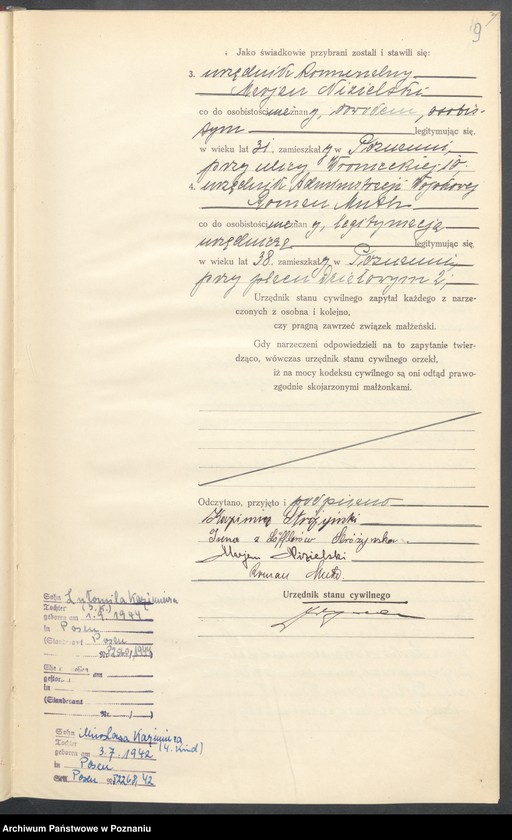 9
Jako świadkowie przybrani zostali i stawili się:
3. urzędnik komunalny
Marjan Nizielski
co do osobistości znany, dowodem osobis-
tym legitymując się,
w wieku lat 31, zamieszkały w Poznaniu,
przy ulicy Wronieckiej 10.
4. urzędnik Administracji Wojskowej
Roman Muth
co do osobistości znany, legitymacją
urzędniczą legitymując się,
w wieku lat 38, zamieszkały w Poznaniu
przy placu Działowym 2;
Urzędnik stanu cywilnego zapytał każdego z narze-
czonych z osobna i kolejno,
czy pragną zawrzeć związek małżeński.
Gdy narzeczeni odpowiedzieli na to zapytanie twier-
dząco, wówczas urzędnik stanu cywilnego orzekł,
iż na mocy kodeksu cywilnego są oni odtąd prawo-
zgodnie skojarzonymi małżonkami.
Odczytano, przyjęto i podpisano
Kazimierz Stróżyński
Irena z Löfflerów Stróżyńska
Marjan Nizielski
Roman Muth.
Urzędnik stanu cywilnego
Sohn Kazimiera
Tochter (3. K.)
geboren am 1.9.1944
in Posen
(Standesamt Posen
Nr. 1944
am
gestorben
in
(Standesamt
Nr. / )
Sohn Mirosława Kazimiera
Tochter (4. Kind)
geboren am 3.7.1942
in Posen
Posen Nr. 2268/42
Archiwum Państwowe w Poznaniu